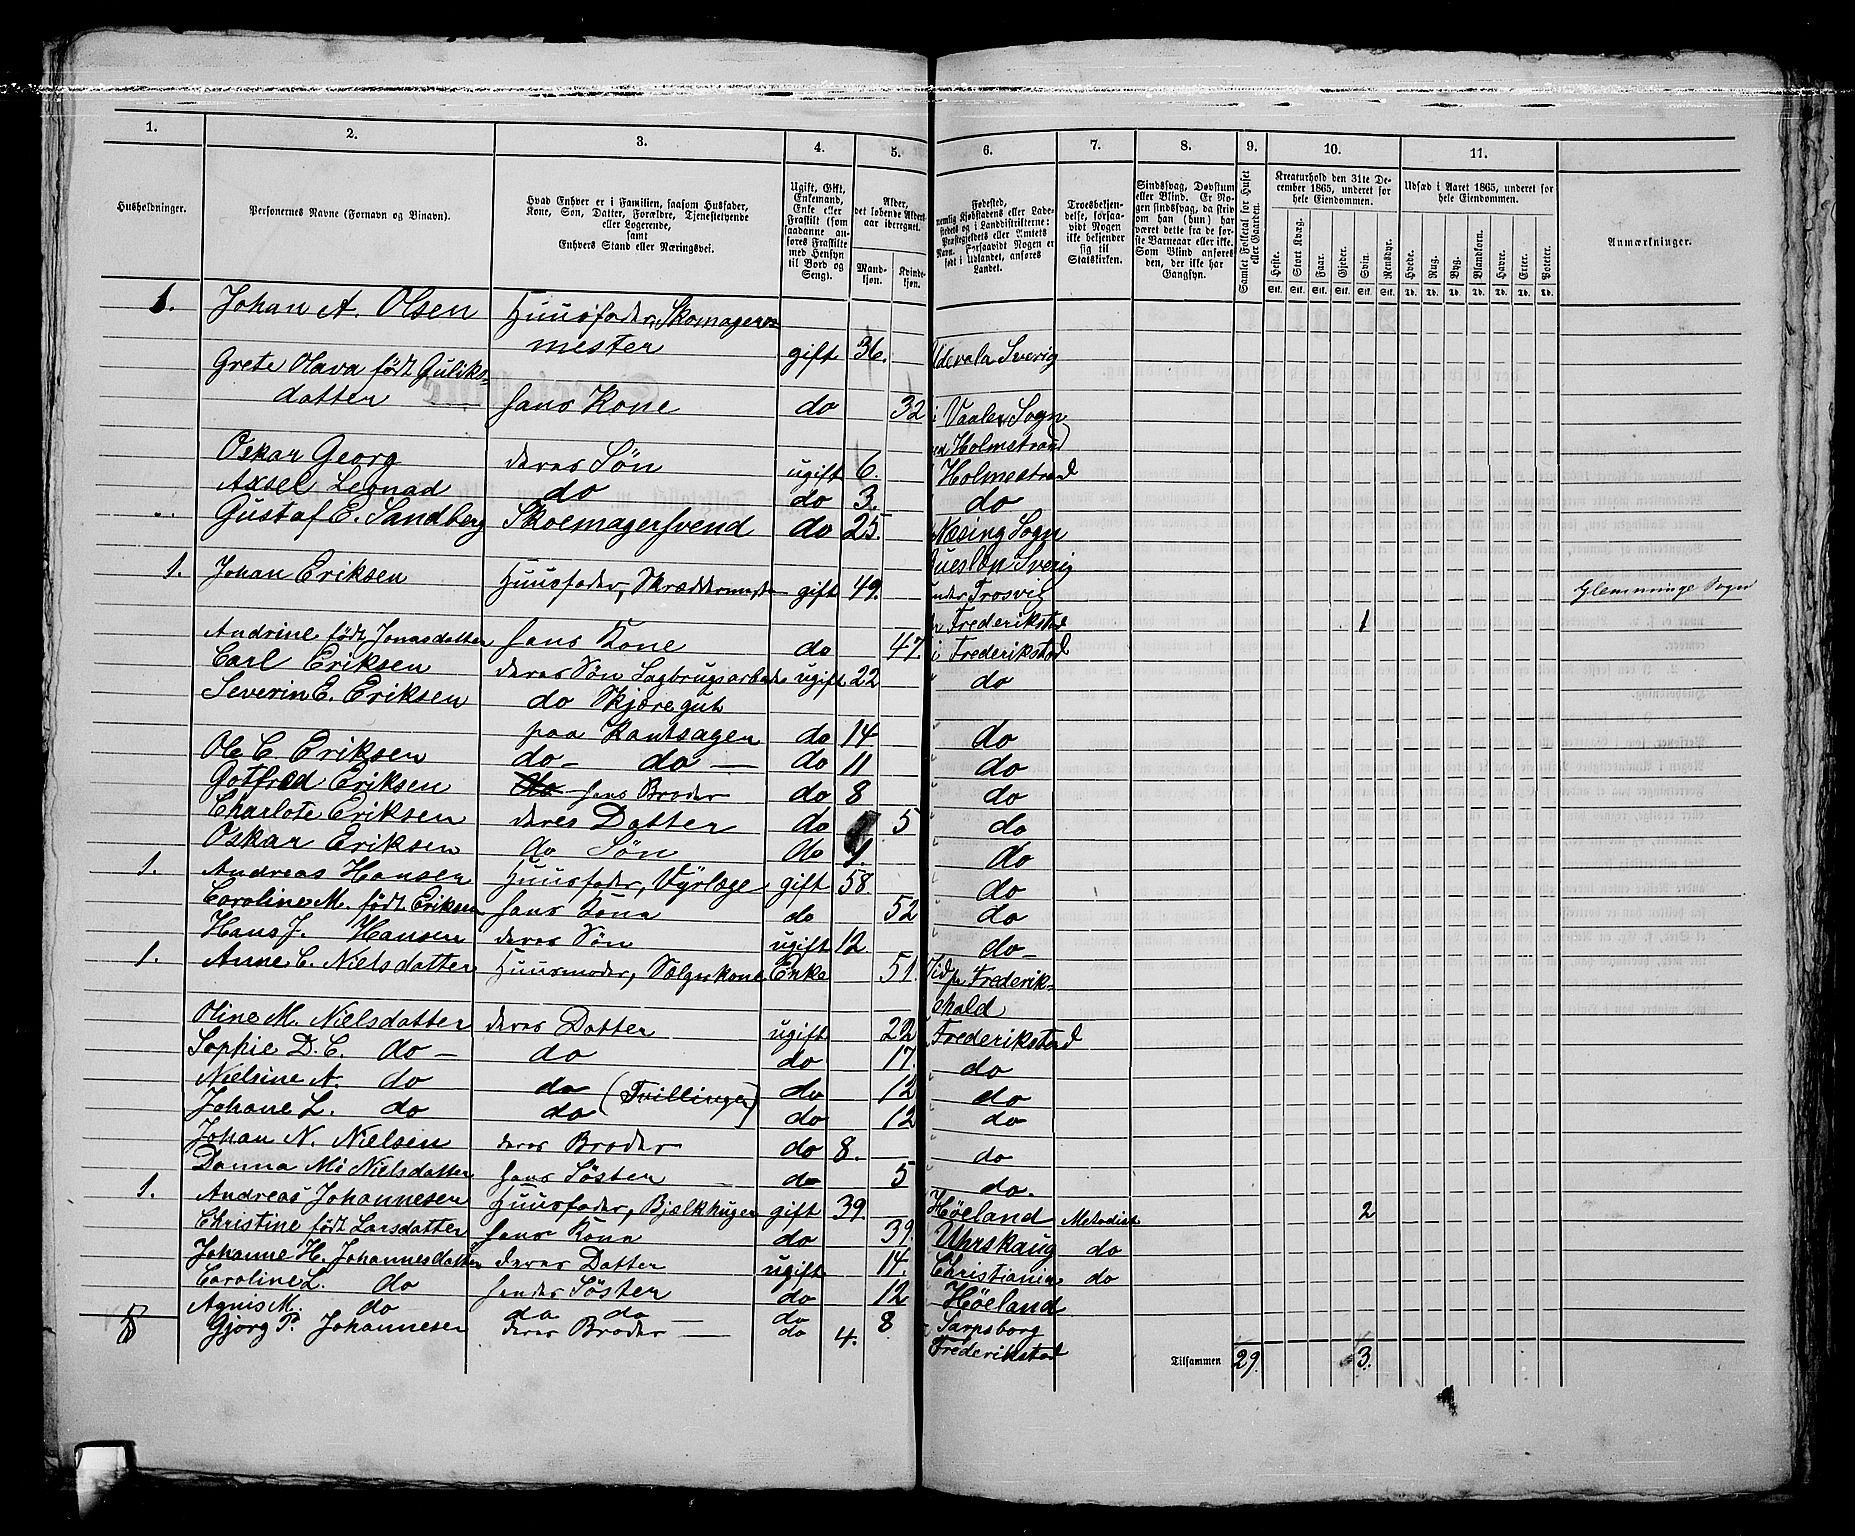 1. 2. 3. 4. 5. 6. 7. 8. 9. 10. 11.
Husholdninger.
Personernes Navne (Fornavn og Binavn).
Hvad Enhver er i Familien, saasom Husfader,
Kone, Søn, Datter, Forældre, Tjenestetyende
eller Logerende,
samt
Enhvers Stand eller Næringsvei.
Ugift, Gift,
Enkemand,
Enke eller
Fraskilt (som
saadanne an-
føres Fraskilte
med Hensyn
til Bord og
Seng).
Alder,
det løbende Alders-
aar iberegnet.
Mand-
kjøn.
Kvinde-
kjøn.
Fødested,
nemlig Kjøbstadens eller Lade-
stedets og i Landdistrikterne:
Præstegjeldets eller Amtets
Navn. Forsaavidt Nogen er
født i Udlandet, anføres
Landet.
Troesbekjen-
delse, forsaa-
vidt Nogen
ikke bekjender
sig til
Statskirken.
Sindssvag, Døvstum
eller Blind. Er No-
gen sindssvag, da skriv
om han (hun) har
været dette fra de før-
ste Barneaar eller ikke.
Som Blind anføres
den, der ikke har
Gangsyn.
Samlet Folketal for Huset
eller Gaarden.
Kreaturhold den 31te De-
cember 1865, underet for
hele Eiendommen.
Heste. Stort Kvæg. Faar. Gjeder. Svin. Rensdyr.
Stk. Stk. Stk. Stk. Stk. Stk.
Udsæd i Aaret 1865, underet for
hele Eiendommen.
Hvede. Rug. Byg. Blandkorn. Havre. Erter. Poteter.
Td. Td. Td. Td. Td. Td. Td.
Anmærkninger.
1. Johan A. Olsen Huusfader, Skomager=
mester gift 36. Udevala Sverig
Grete Olava født Guliks=
datter hans Kone do 32 i Vaaler Sogn
Holmstrand
Oskar Georg deres Søn ugift 6. Holmestrand
Axsel Leonad do do 3. do
Gustaf E. Sandberg Skoemagersvend do 25. Næsing Sogn
Sverig
1. Johan Eriksen Huusfader, Skræddermester gift 49. under Trosvig Glemminge Sogn
Frederikstad 1
Andrine født Jonasdatter hans Kone do 47. i Frederikstad
Carl Eriksen deres Søn Sagbrugsarbeder ugift 22 " do
Severin E. Eriksen do Skjæregut
paa Kantsagen do 14 " do
Ole C. Eriksen do - do - do 11 " do
Gotfred Eriksen do hans Broder do 8 " do
Charlote Eriksen deres Datter do 5 " do
Oskar Eriksen do Søn do 1. " do
1. Andreas Hansen Huusfader, gift 58. " do
Caroline M. født Eriksen hans Kone do 52 " do
Hans J. Hansen deres Søn ugift 12. " do -
1. Anne C. Nielsdatter Huusmoder, Sælgerkone Enke 51. Frederik=
shald
Oline M. Nielsdatter deres Datter ugift 22 Frederikstad
Sophie D. C. do - do do 17. " do
Nielsine A. do do (Tvillinger) do 12 " do
Johane L. do do do 12 " do
Johan N. Nielsen deres Broder do 8. " do
Danna Mi Nielsdatter hans Søster do 5 " do.
1. Andreas Johannesen Huusfader, Bjælkhuger gift 39. Høeland Metodist 2
Christine født Larsdatter hans Kone do 39. Uhrskaug do
Johanne H. Johannesdatter deres Datter ugift 14. Christiania do
Caroline L. do hendes Søster do 12 Høeland
Agnis M. do do do do 8 Sarpsborg
Gjorg P. Johannesen deres Broder do 4. Frederikstad
Tilsammen 29. 3.